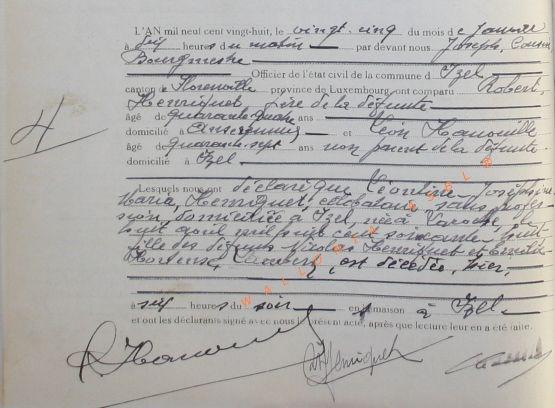 4
L'AN mil neuf cent vingt-huit, le vingt-cinq du mois de Janvier
à dix heures du matin par devant nous Joseph, Cousin
Bourgmestre
Officier de l'état civil de la commune d'Izel
canton de Florenville province de Luxembourg, ont comparu Robert,
Henriquet, père de la défunte
âgé de quarante quatre ans
domicilié à et Léon Hanouille
âgé de quarante-sept ans non parent de la défunte
domicilié à Izel
Lesquels nous ont déclaré que Léontine Joséphine
Maria, Henriquet, célibataire sans profes-
sion, domiciliée à Izel, née à Laroche, le
huit avril mil huit cent soixante huit
fille des défunts Nicolas Henriquet et
Hortense est décédée, hier,
à six heures du soir en sa maison à Izel
et ont les déclarants signé avec nous le présent acte, après que lecture leur en a été faite.
Henriquet
WALLONIA ASBL